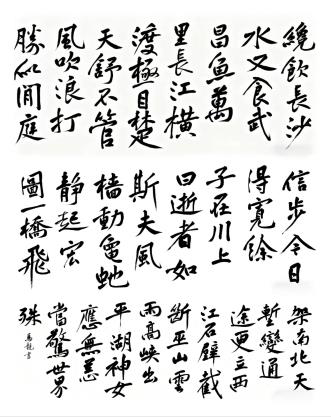 纔飲長沙
水又食武
昌魚萬
里長江橫
渡極目楚
天舒不管
風吹浪打
勝似閒庭
信步今日
得寬餘
子在川上
曰逝者如
斯夫風
檣動龜蛇
靜起宏
圖一橋飛
架南北天
塹變通
途更立西
江石壁截
斷巫山雲
雨高峽出
平湖神女
應無恙
當驚世界
殊
馬龍書